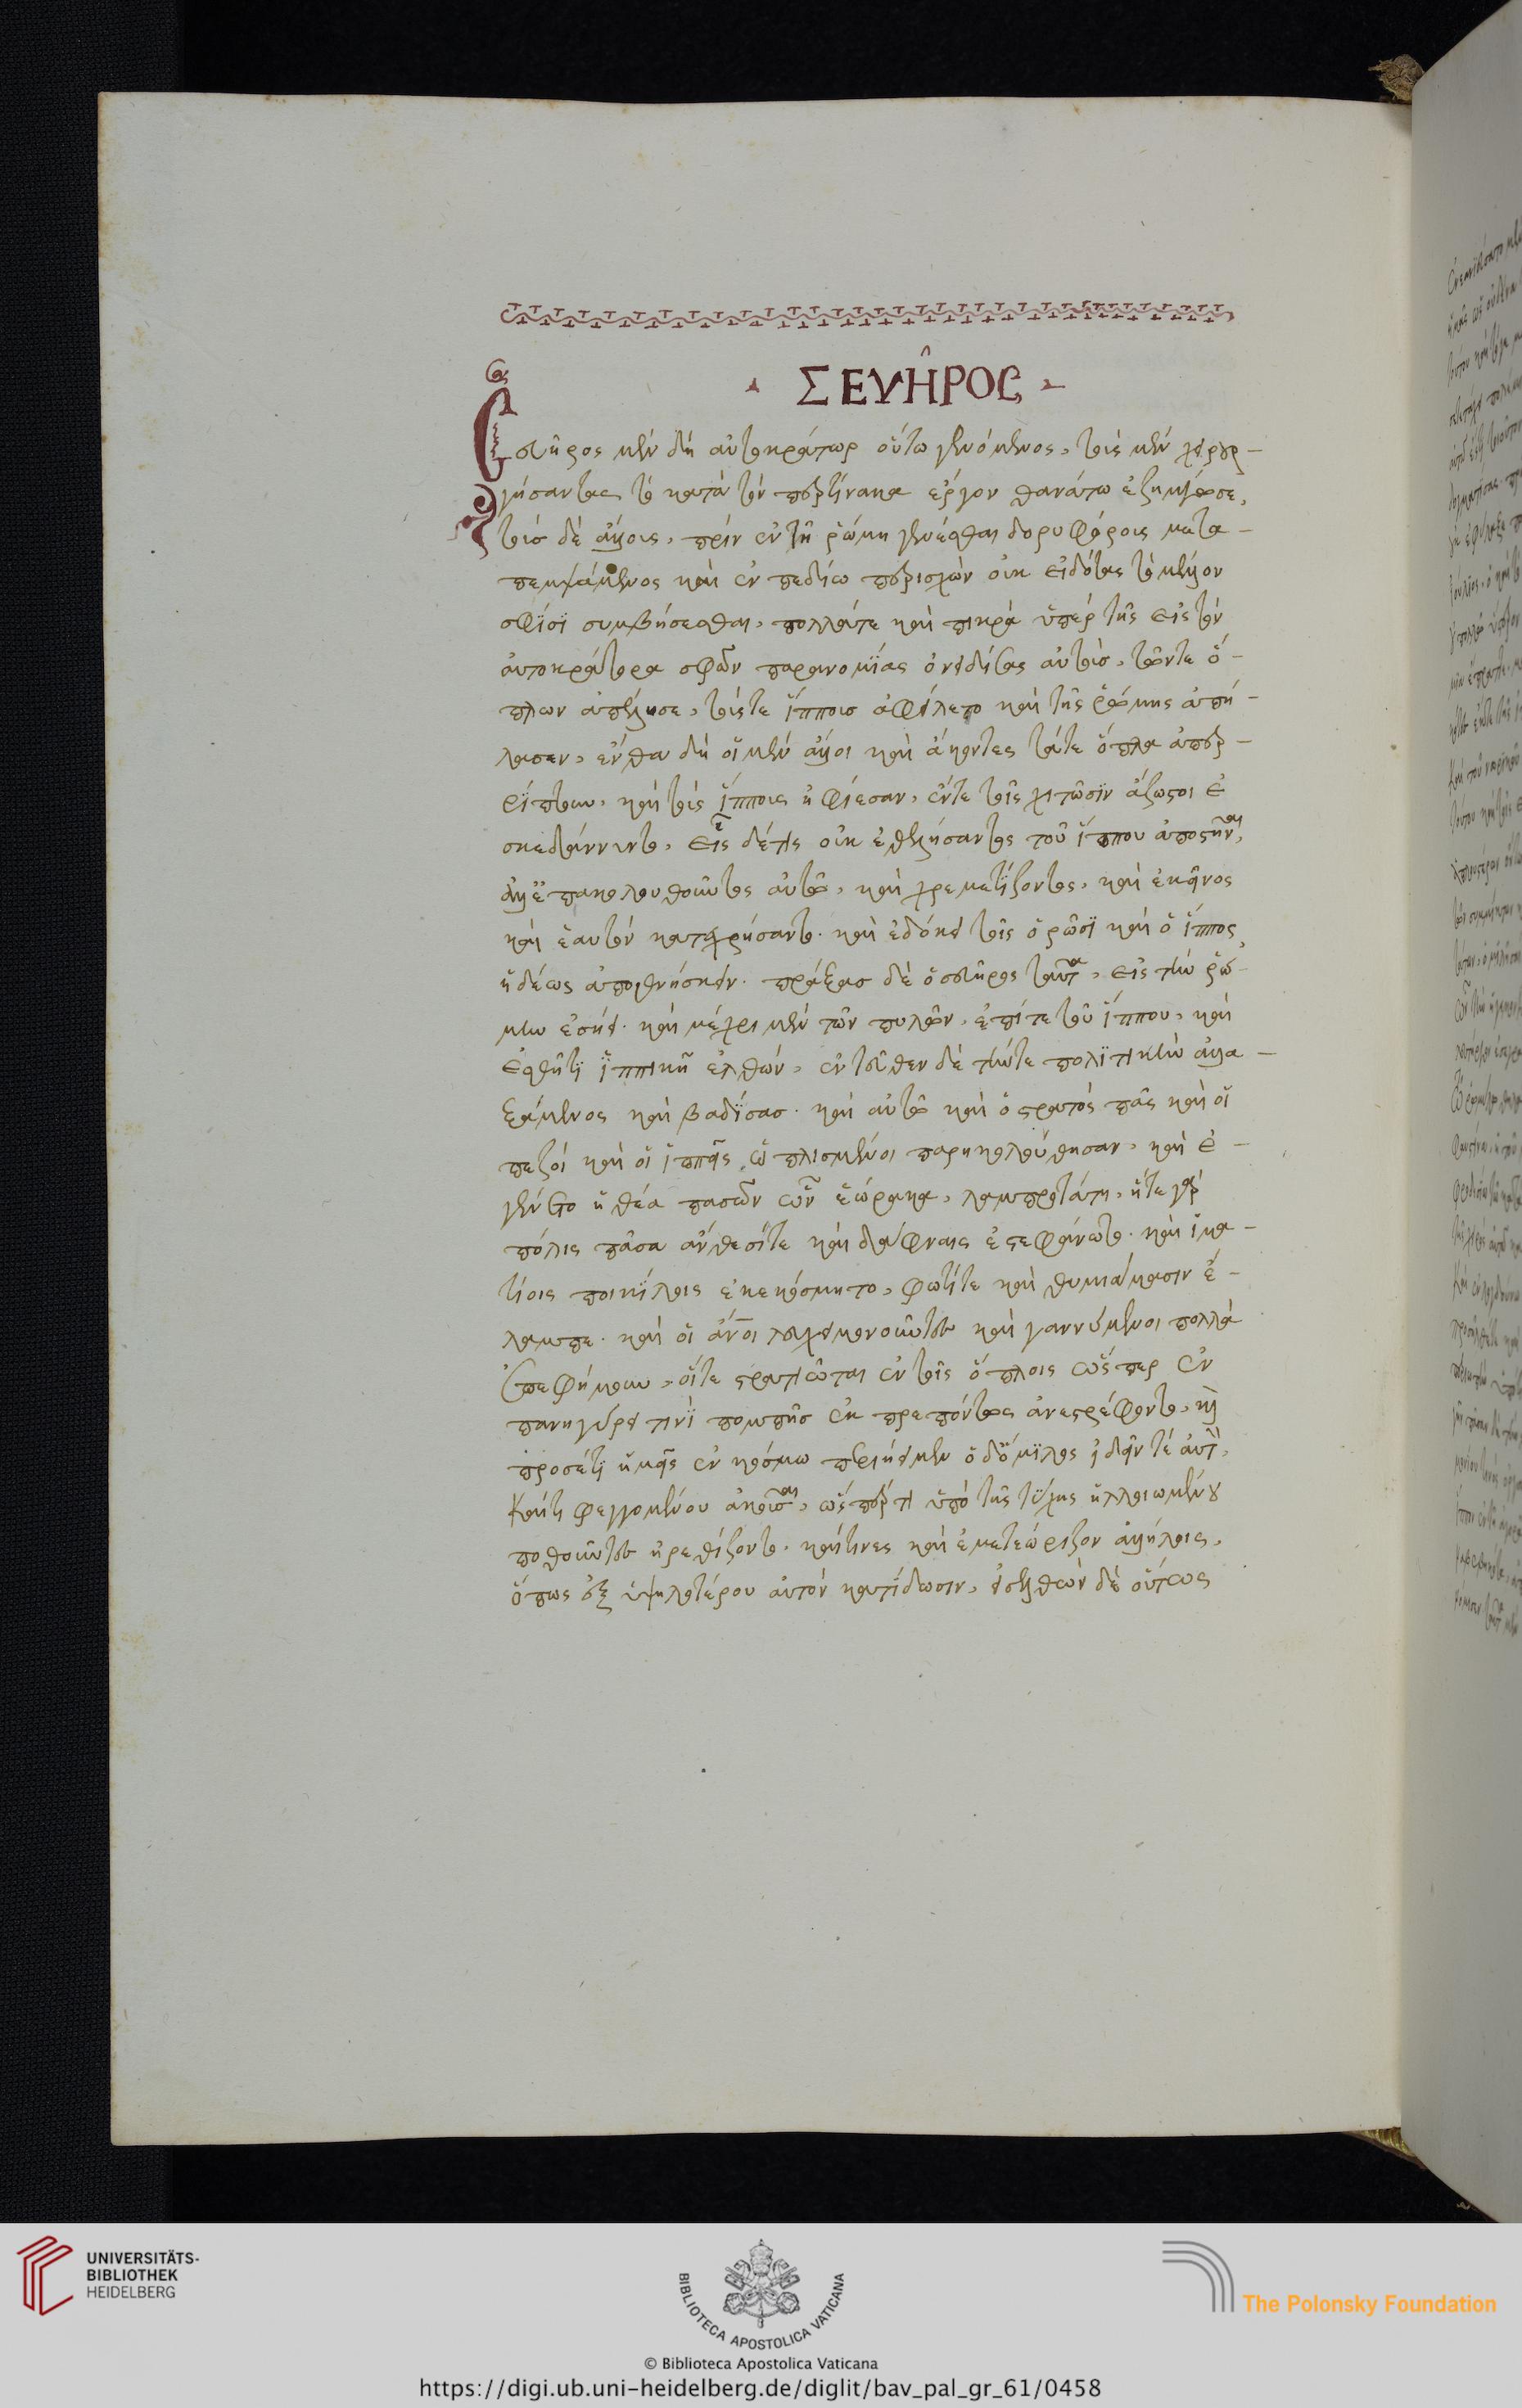 ΣΕΥΗ͂ΡΟΣ
Σευῆρος μὲν δὴ αὐτοκράτωρ οὕτω γενόμενος, τοὺς μὲν χειρουρ-
γήσαντας τὸ κατὰ τὸν περτίνακα ἔργον θανάτω ἐζημίωσε,
τοὺς δὲ ἄλλους, πρὶν ἐν τῆ ῥώμη γενέσθαι δορυφόρους μετα-
πεμψάμενος καὶ ἐν πεδίω περισχὼν οὐκ εἰδότας τὸ μέλλον
σφίσι συμβήσεσθαι, πολλάτε καὶ πικρὰ ὑπὲρ τῆς εἰς τὸν
αὐτοκράτορα σφῶν παρανομίας ὀνειδίσας αὐτοῖς, τῶντε ὅ-
πλων ἀπέλυσε, τούςτε ἵππους ἀφείλετο καὶ τῆς ῥώμης ἀπή-
λασεν, ἔνθα δὴ οἱ μὲν ἄλλοι καὶ ἄκοντες τάτε ὅπλα ἀπερ-
ρίπτουν, καὶ τοὺς ἵππους ἠφίεσαν, ἔντε τοῖς χιτῶσιν ἄζωστοι ἐ
σκεδάννυντο, εἷς δέτις οὐκ ἐθελήσαντος τοῦ ἵππου ἀποστῆναι,
ἀλλ' ἐπακολουθοῦντος αὐτῶ, καὶ χρεμετίζοντος, καὶ ἐκεῖνος
καὶ ἑαυτὸν κατεχρήσαντο. καὶ ἐδόκει τοῖς ὁρῶσι καὶ ὁ ἵππος
ἡδέως ἀποθνήσκειν. πράξας δὲ ὁ σευῆρος ταῦτα, εἰς τὴν ῥώ-
μην ἐσήει. καὶ μέχρι μὲν τῶν πυλῶν, ἐπίτε τοῦ ἵππου, καὶ
ἐσθῆτι ἱππικῆ ἐλθών, ἐντεῦθεν δὲ τήντε πολιτικὴν ἀλλα-
ξάμενος καὶ βαδίσας. καὶ αὐτῶ καὶ ὁ στρατὸς πᾶς καὶ οἱ
πεζοὶ καὶ οἱ ἱππεῖς ὡπλισμένοι παρηκολούθησαν, καὶ ἐ-
γένετο ἡ θέα πασῶν ὧν ἑώρακα, λαμπροτάτη, ἥτε γὰρ
πόλις πᾶσα ἄνθεσίτε καὶ δάφναις ἐστεφάνωτο. καὶ ἱμα-
τίοις ποικίλοις ἐκεκόσμητο, φωτίτε καὶ θυμιάμασιν ἔ-
λαμπε. καὶ οἱ ἄνοι λευχειμονοῦντες καὶ γαννύμενοι πολλὰ
ἐπεφήμουν, οἵτε στρατιῶται ἐν τοῖς ὅπλοις ὥσπερ ἐν
πανηγύρει τινὶ πομπῆς ἐκπρεπόντως ἀνεστρέφοντο, καὶ
προσέτι ἡμεῖς ἐν κόσμω περιήειμεν ὁ δόμιλος ἰδεῖν τέ αὐτὸν,
καίτι φεγγομένου ἀκοῦσαι, ὥσπερ τι ὑπὸ τῆς τύχης ἠλλοιωμένου
ποθοῦντες ἠρεθίζοντο. καίτινες καὶ ἐμετεώριζον ἀλλήλους,
ὅπως ἐξ ὑψηλοτέρου αὐτὸν κατίδωσιν, εἰσελθὼν δὲ οὕτως
UNIVERSITÄTS-
BIBLIOTHEK
HEIDELBERG
BIBLIOTECA APOSTOLICA VATICANA
The Polonsky Foundation
© Biblioteca Apostolica Vaticana
https://digi.ub.uni-heidelberg.de/diglit/bav_pal_gr_61/0458